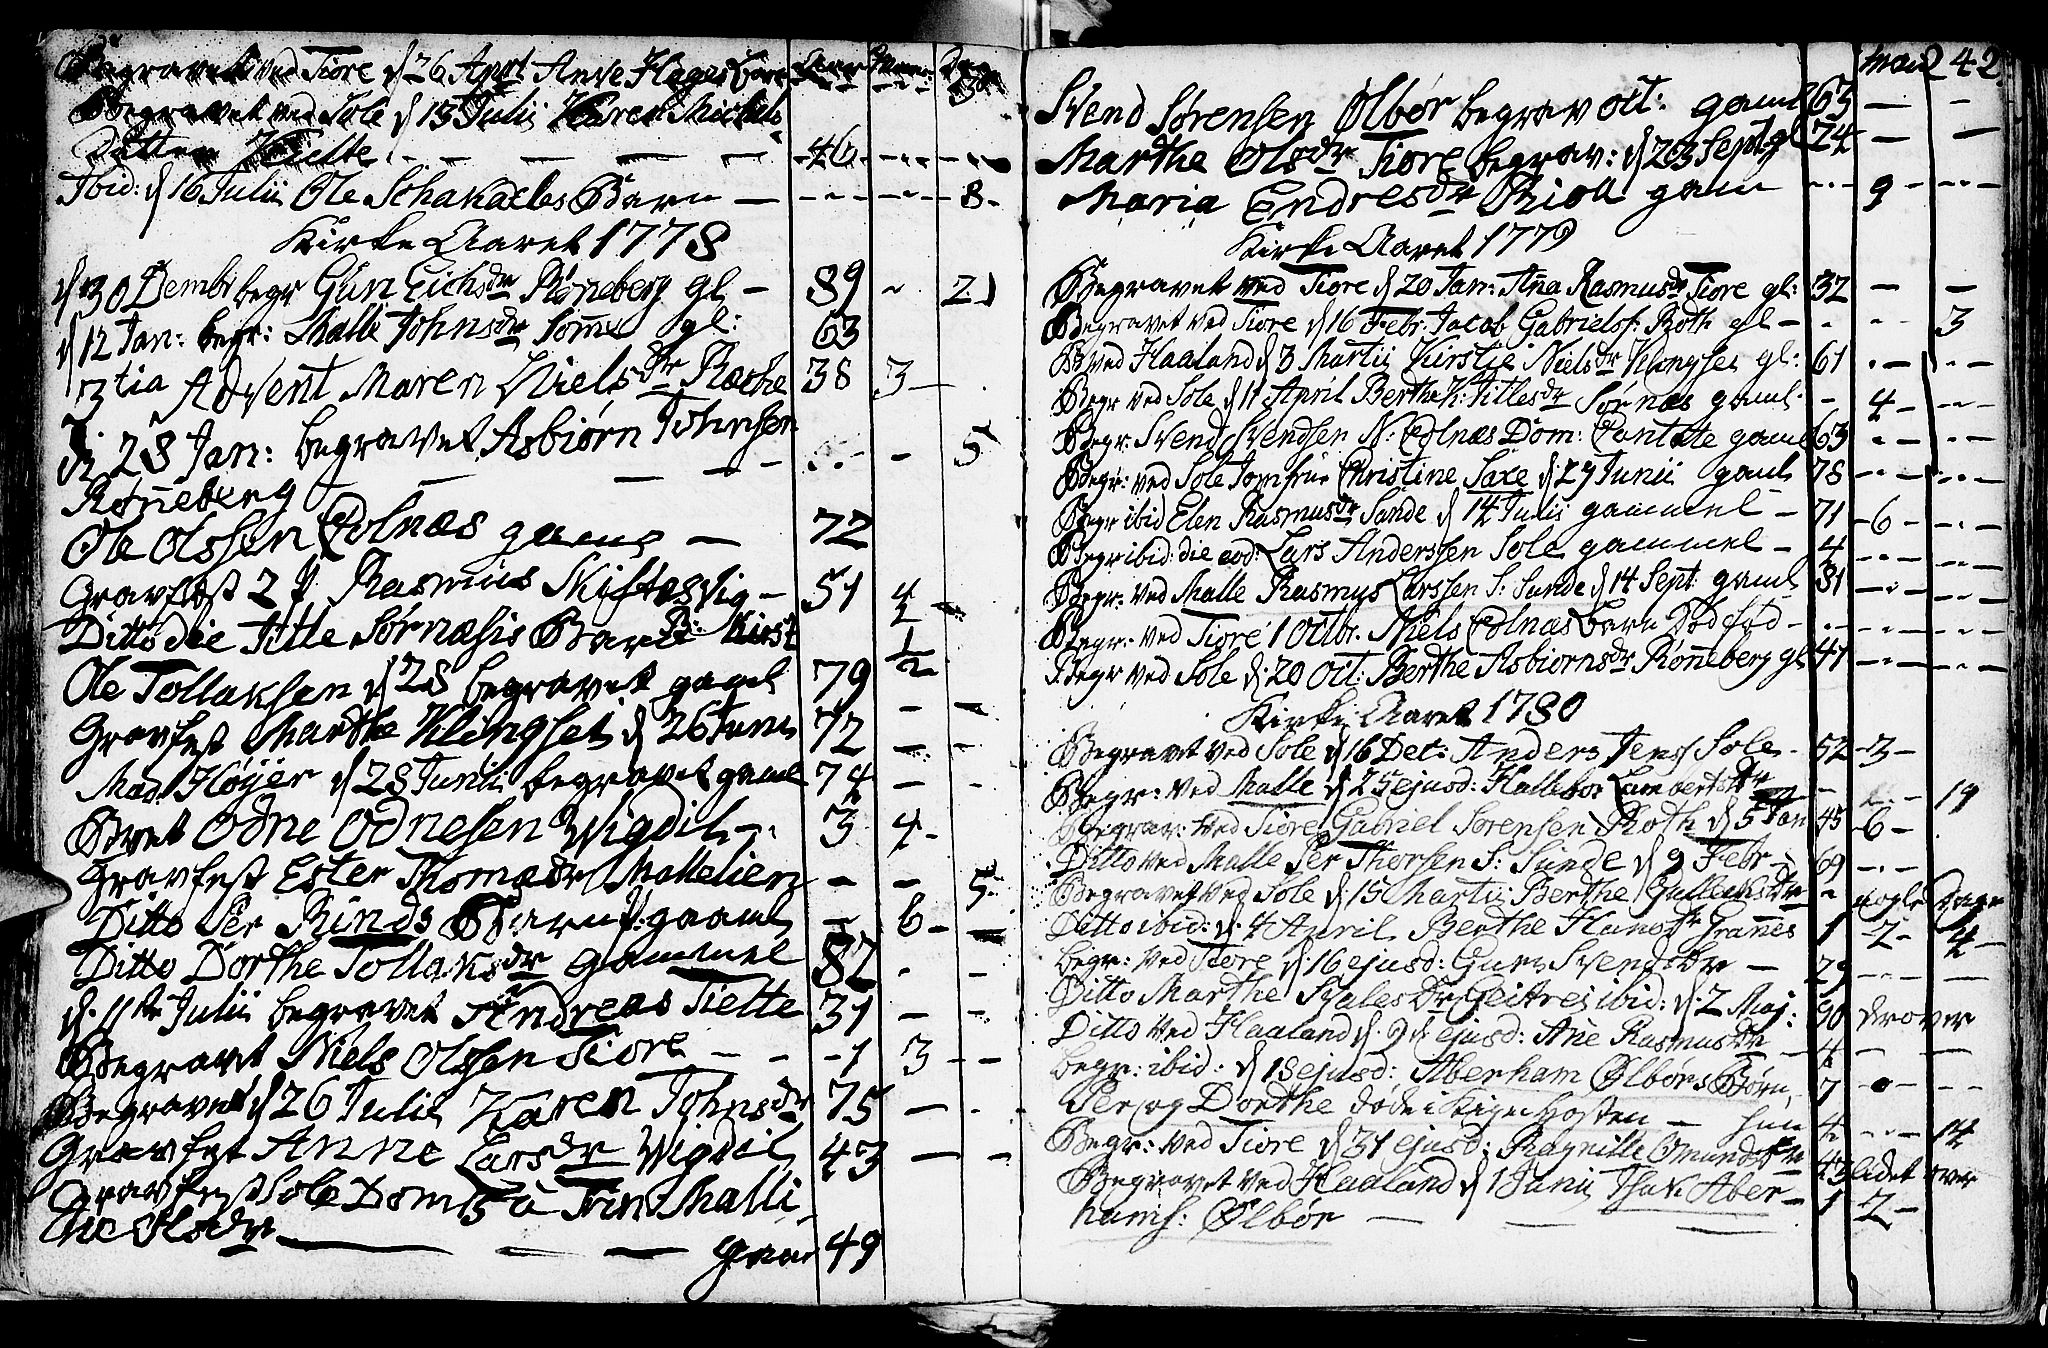 Begravet ved Tiore d 26 Apr Anve Hages barn Aar Maan: Dag
Begravet ved Sole d 13 Julii Karen Mickels
datter Kielte - - - - - 46 - -
Ibid: d 16 Julii Ole Schakaelles Barn - - - 8 -
Kirke Aaret 1778
d 30 Dembr begr Guri Eichsdr Røneberg gl - 89 - 21
d 12 Jan: begr: Malle Johnsdr Somme gl: 63
3tia Advent Maren Nielsdr Ræge 38 3 -
di 28 Jan: begravet Asbiørn Johnsen
Røneberg - - - - - - 5
Ole Olssen Golnæs gaml - 72
Gravfest 2 P. Rasmus Skiftesvig - 51 4/2
Ditto die Title Sørnæsis Barn Kirst 1/2
Ole Tollaksen d 28 begravet gaml 79
Gravfest Marthe Klingset d 26 Junii 72 - -
Mad: Høyer d 28 Junii begravet gaml 74 - -
Bvet Odne Odnesen Wigdil - 3 4 -
Gravfest Ester Thomædr Mallelien - - 5
Ditto Per Rinds Barn gaml - 6 -
Ditto Dorthe Tollaksdr gammel 82 - -
d. 11te Julii begravet Andreas Tielte 31 - -
Begravet Niels Olssen Tiore - - - 1 3 - -
Begravet d 26 Julii Karen Johnsdr 75 - -
Gravfest Anne Larsdr Wigdil 43 - -
Gravfest Sole Dom 5 a Trin Malli
the Olsdr - - - gaml 49
Maan 242
Svend Sørensen Ølbør begrav oct: gaml 63 - -
Marthe Olsdr Tiore begrav: d 23 Sept gl 74 - -
Maria Endresdr Riou gam - 9 - -
Kirke Aaret 1779
Begravet ved Tiore d 20 Jan: Aña Rasmusdr Tiore gl: 32 - -
Begravet ved Tiore d 16 Febr. Jacob Gabrielss: Roth gl - - - 3
B ved Haaland d 3 Martii Kirstie Nielsdr Klengset gl: 61 - -
Begr ved Sole d 11 April Berthe K: Titlesdr Sørnæs gaml - 4 - -
Begr: Svend Svendsen N: Golnæs Dom: Cantate gaml 63 - -
Begr: ved Sole Jomfrue Christine Saxe d 27 Junii gaml 78 - -
Begr ibid Elen Rasmusdr Sande d 14 Julii gammel - 71 - 6 - -
Begr ibid: die eod: Lars Anderssen Sole gammel - 4 - -
Begr: ved Malle Rasmus Larssen S: Sunde d 14 Sept: gaml 81 - -
Begr: ved Tiore 1 Octbr. Niels Golnæs barn Dødfød - - -
Begr ved Sole d. 20 Oct: Berthe Asbiornsdr Røneberg gl 41 - -
Kirke Aaret 1780
Begravet ved Sole d 16 Det: Anders Jenss Sole - 52 - 3 -
Begr: ved Malle d 25 ejusd: Hallebor Lambertsdr - - 19
Begrav: ved Tiore Gabriel Sørensen Roth d 5 Jan 45 - 6 -
Ditto ved Malle Per Thorsen S: Sunde d 9 Febr - 69 - -
Begravet ved Sole d: 15 Martii Berthe Gulleiksdr - nogle Dage
Ditto ibid: d. 4 April Berthe Hansdr Grannes 1 - 2 - 4 -
begr: ved Tiore d 16 ejusd: Guri Svendsdr - 29 - -
Ditto Marthe Syalesdr ibid: d. 2 Maj: 90 der over
Ditto ved Haaland d. 9 d ejusd: Ane Rasmusdr - 4 - -
begr: ibid: d 18 ejusd: Aberham Ølbørs Børn, 7 - 0 - -
Per og Dorthe døde i kigen Hosten - hun 4 - - 14
Begr: ved Tiore d 31 ejusd: Ragnille Omundsdr 43 lidet over
Begravet ved Haaland d 1 Junii Isak Aber- 1 2 -
hams: Ølbør - - -